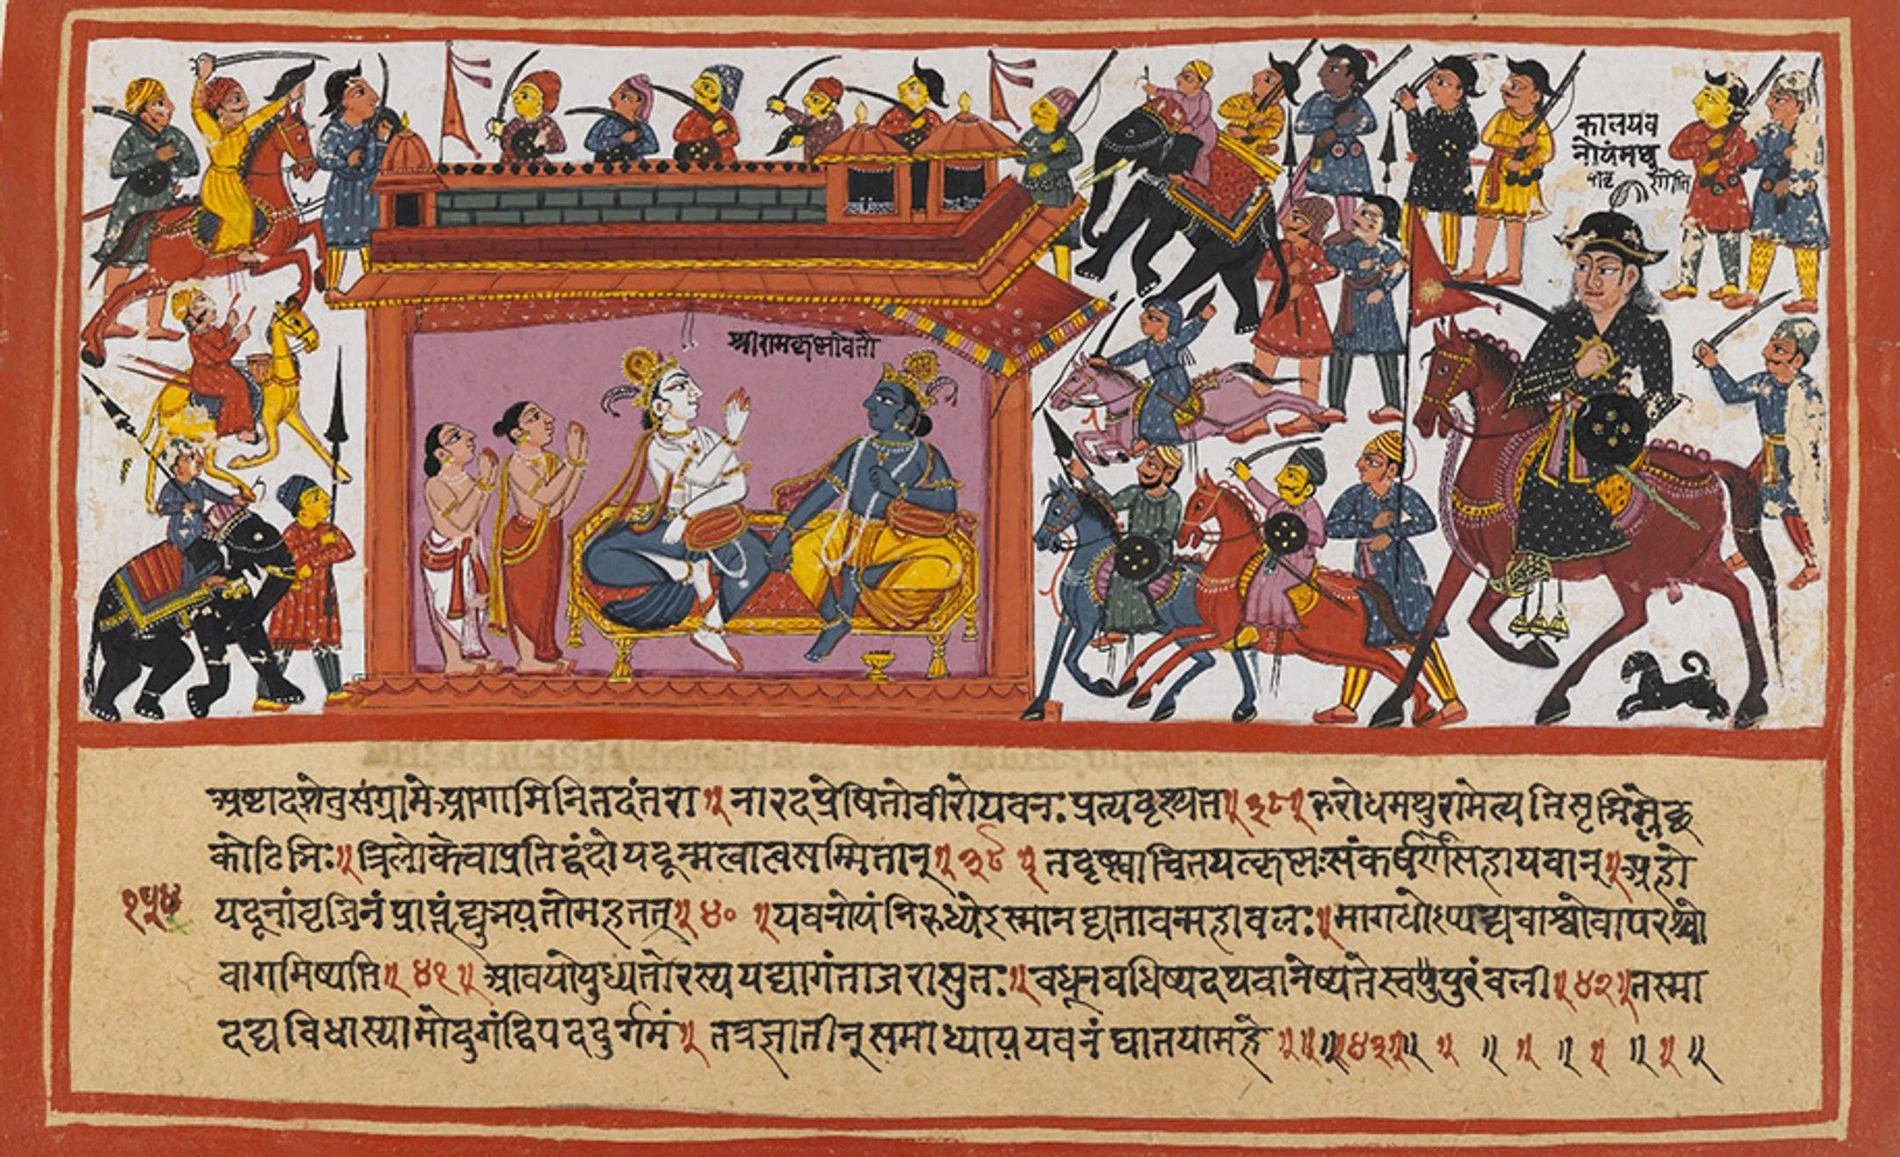 कालयव
नोयंमथु
श्रीरामकृष्णौवर्तते
अष्टादशेतुसंग्रामेआगामिनितदंतरा॥नारदप्रेषितोवीरोयवनःप्रत्यदृश्यत॥३८॥रुरोधमथुरामेत्यतिसृभिर्म्लेछ
कोटिभिः॥त्रिलोकेचाप्रतिद्वंदोयदून्मत्वात्मसम्मितान्॥३९॥तंदृष्ट्वाचिंतयत्कृष्णःसंकर्षणसहायवान्॥अहो
१५४
यदूनांवृजिनंप्राप्तंह्युभयतोमहत्तत्॥४०॥यवनोयंनिरुध्येऽस्मानद्यतावन्महाबलः॥मागधोऽप्यद्यवाश्वोवापरश्वो
वागमिष्यति॥४१॥आवयोयुध्यतोरस्ययद्यागंताजरासुतः॥बधून्वधिष्यदथवानेष्यतेस्वपुपुरंबली॥४२॥तस्मा
दद्यविधास्यामोदुर्गंद्विपददुर्गमं॥तत्रज्ञातीन्समाध्याप्ययवनंघातयामहे॥॥॥४३॥॥ ॥ ॥ ॥ ॥ ॥ ॥ ॥ ॥